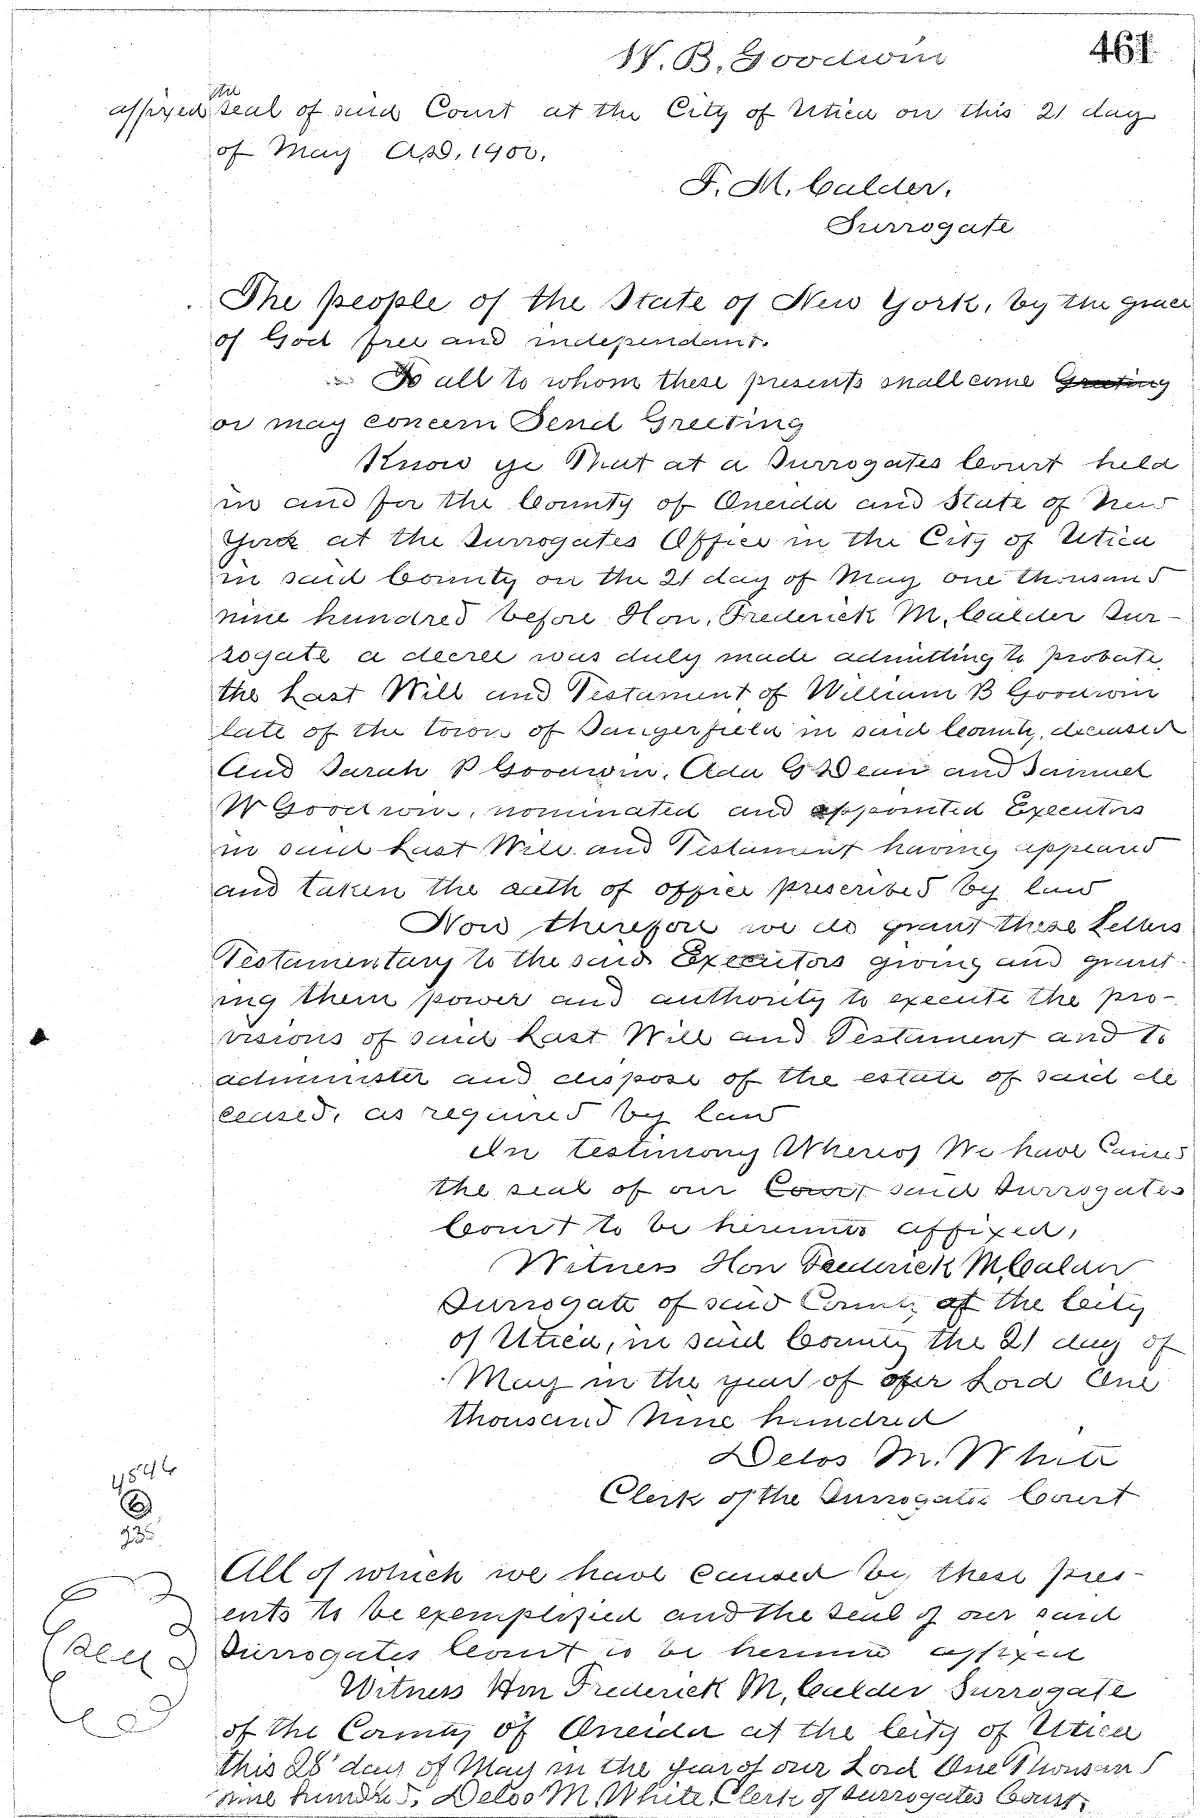 W. B. Goodwin
461
the
affixed seal of said Court at the City of Utica on this 21 day
of May A.D. 1900.
F. M. Calder,
Surrogate
The people of the State of New York, by the grace
of God free and independant.
To all to whom these presents shall come Greeting
or may concern Send Greeting
Know ye That at a Surrogates Court held
in and for the County of Oneida and State of New
York at the Surrogates Office in the City of Utica
in said County on the 21 day of May one thousand
nine hundred before Hon. Frederick M. Calder Sur-
rogate a decree was duly made admitting to probate
the Last Will and Testament of William B Goodwin
late of the town of Sangerfield in said County, deceased
And Sarah P Goodwin, Ada G Dean and Samuel
W Goodwin, nominated and appointed Executors
in said Last Will and Testament having appeared
and taken the oath of office prescribed by law
Now therefore we do grant these Letters
Testamentary to the said Executors giving and grant-
ing them power and authority to execute the pro-
visions of said Last Will and Testament and to
administer and dispose of the estate of said de
ceased, as required by law
In testimony Whereof We have Caused
the seal of our Court said Surrogates
Court to be hereunto affixed,
Witness Hon Frederick M. Calder
Surrogate of said County at the City
of Utica, in said County the 21 day of
May in the year of our Lord One
thousand nine hundred
Delos M. White
Clerk of the Surrogates Court
4546
6
235
All of which we have caused by these pres-
ents to be exemplified and the seal of our said
Seal
Surrogates Court to be hereunto affixed
Witness Hon Frederick M. Calder Surrogate
of the County of Oneida at the City of Utica
this 28' day of May in the year of our Lord One Thousand
nine hundred. Delos M. White, Clerk of Surrogates Court.